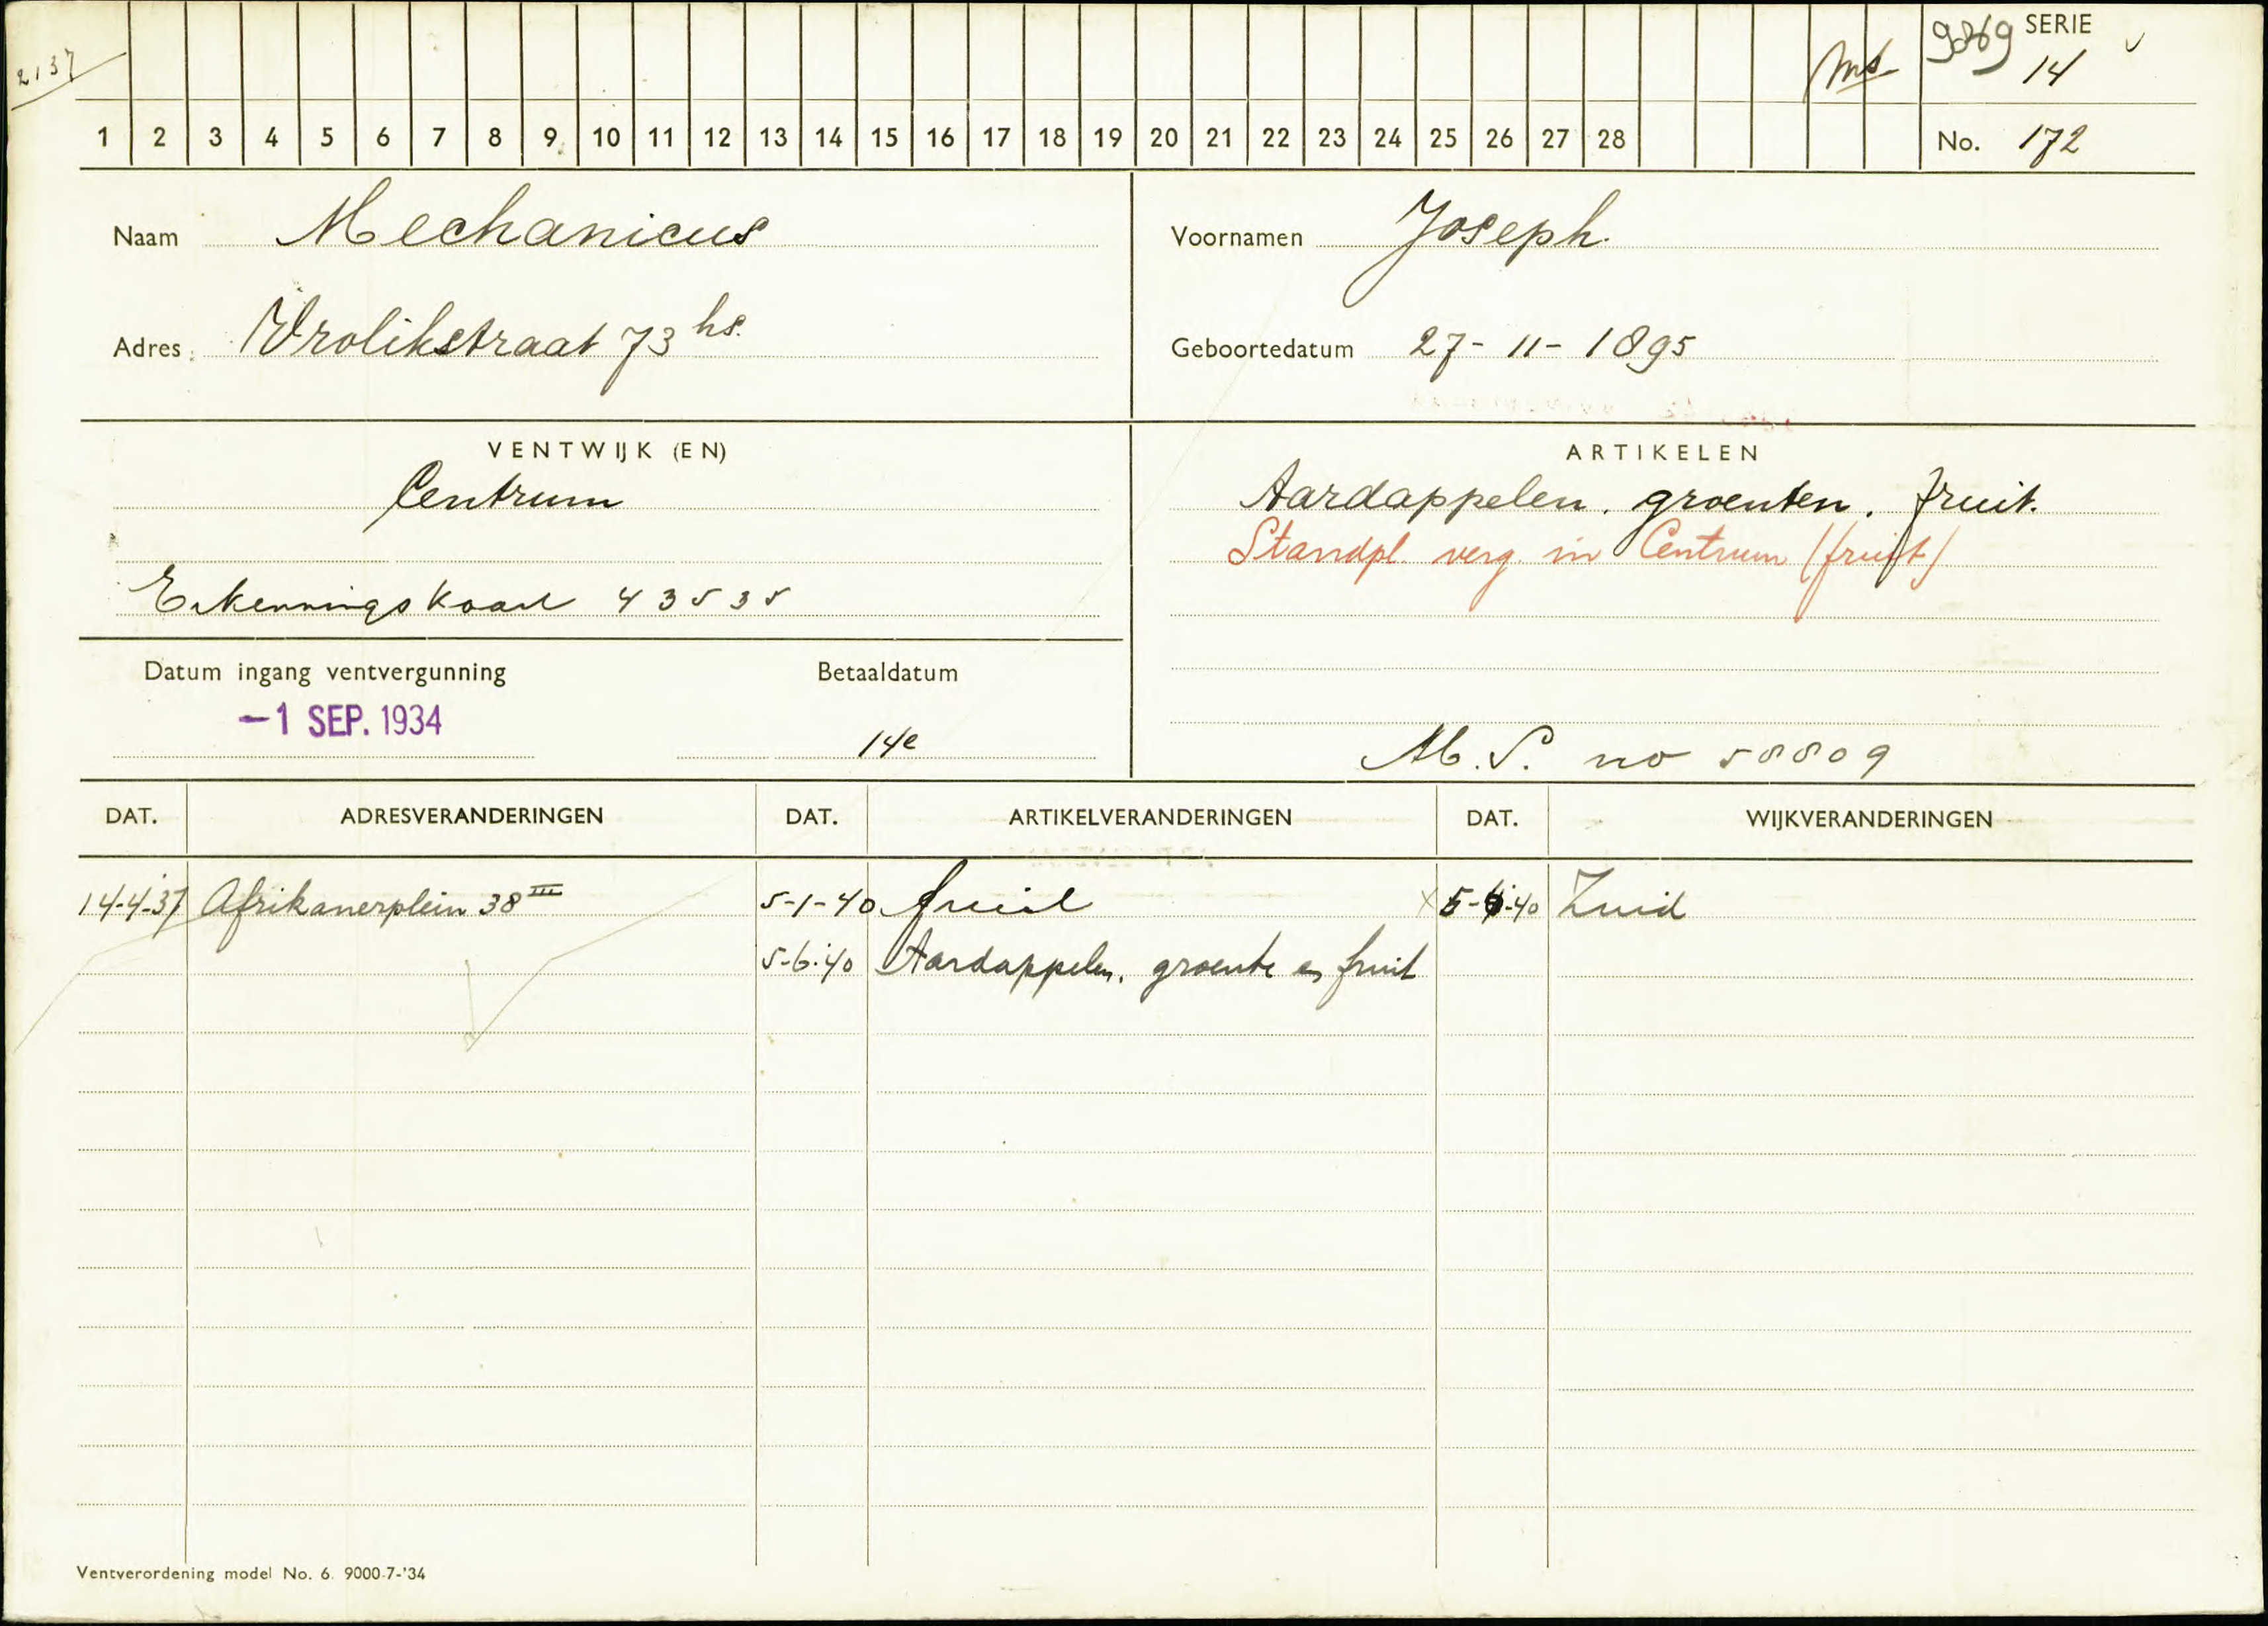 2137
Mt.
9869 SERIE
14
1 2 3 4 5 6 7 8 9 10 11 12 13 14 15 16 17 18 19 20 21 22 23 24 25 26 27 28 No. 172
Naam Mechanicus
Voornamen Joseph.
Adres Vrolikstraat 73 hs.
Geboortedatum 27-11-1895
VENTWIJK (EN)
Centrum
Erkenningskaart 43535
ARTIKELEN
Aardappelen. groenten. fruit.
Standpl. verg. in Centrum (fruit)
Datum ingang ventvergunning Betaaldatum
-1 SEP. 1934
14e
M.S. no 58809
DAT. ADRESVERANDERINGEN DAT. ARTIKELVERANDERINGEN DAT. WIJKVERANDERINGEN
14-4-37 Afrikanerplein 38 III 5-1-40 fruit x 5-6-40 Zuid
5-6-40 Aardappelen, groente en fruit
Ventverordening model No. 6. 9000-7-'34